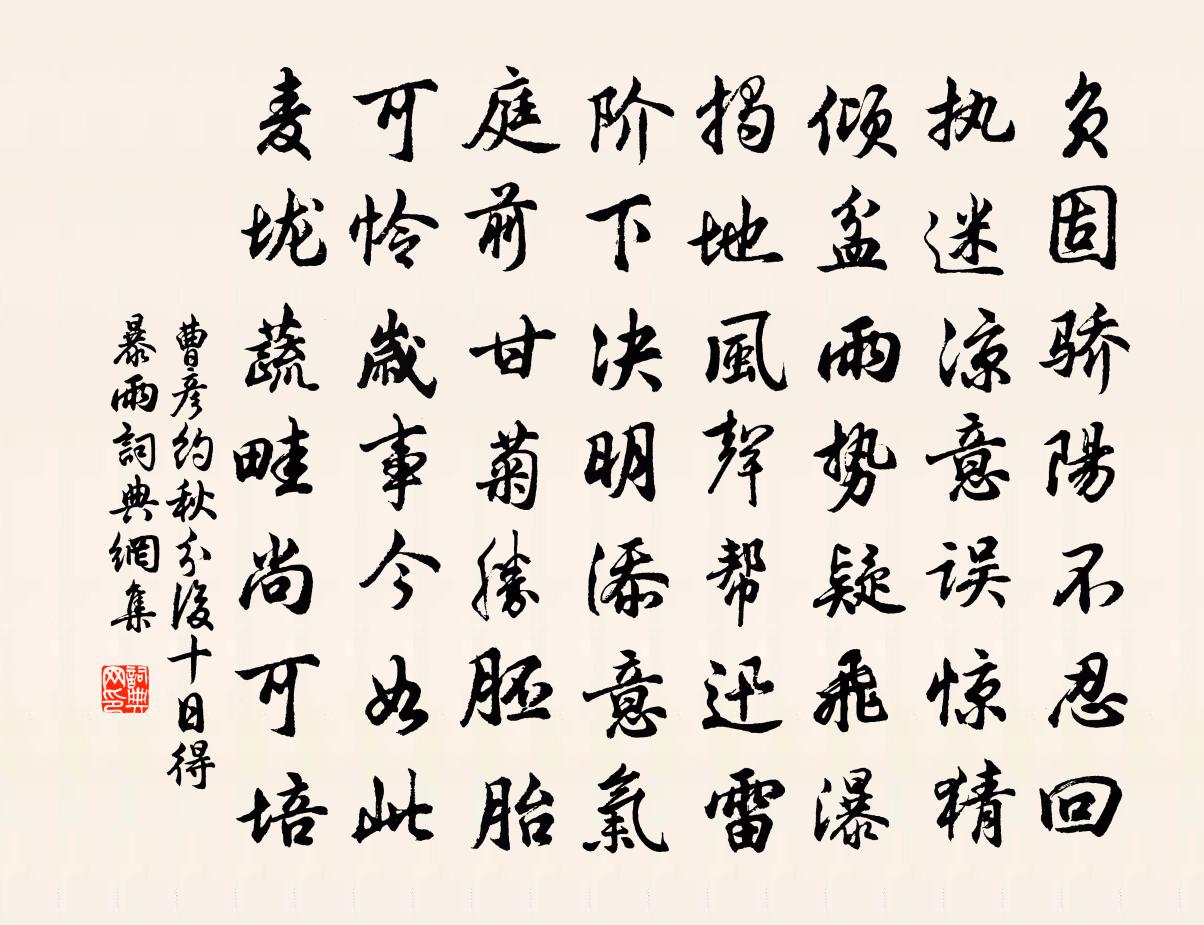 负固骄陽不忍回
执迷凉意误惊猜
倾盆雨势疑飛瀑
揭地風聲帮迅雷
阶下决明添意氣
庭前甘菊勝胚胎
可怜歲事今如此
麦垅蔬畦尚可培
曹彦约秋分後十日得
暴雨詞典網集
詞典网印